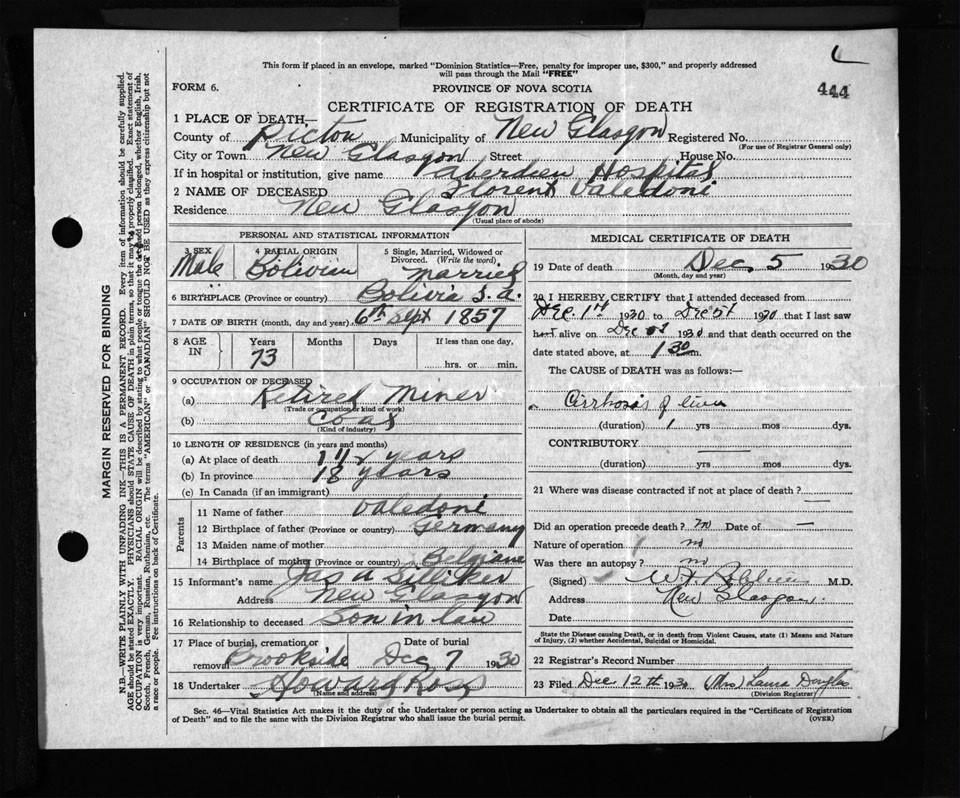 This form if placed in an envelope, marked "Dominion Statistics—Free, penalty for improper use, $300," and properly addressed
will pass through the Mail "FREE"
444
FORM 6.
PROVINCE OF NOVA SCOTIA
CERTIFICATE OF REGISTRATION OF DEATH
1 PLACE OF DEATH—
County of Pictou Municipality of New Glasgow Registered No.
(For use of Registrar General only)
City or Town New Glasgow Street House No.
If in hospital or institution, give name Aberdeen Hospital
2 NAME OF DECEASED Florent Valedoni
Residence New Glasgow
(Usual place of abode)
PERSONAL AND STATISTICAL INFORMATION
3 SEX Male
4 RACIAL ORIGIN Bolivian
5 Single, Married, Widowed or Divorced. (Write the word) Married
6 BIRTHPLACE (Province or country) Bolivia S. A.
7 DATE OF BIRTH (month, day and year) 6th Sept 1857
8 AGE IN Years Months Days If less than one day,
73
hrs. or min.
9 OCCUPATION OF DECEASED
(a) Retired Miner
(Trade or occupation or kind of work)
(b) Coal
(Kind of industry)
10 LENGTH OF RESIDENCE (in years and months)
(a) At place of death years
(b) In province 18 years
(c) In Canada (if an immigrant)
Parents
11 Name of father Valedoni
12 Birthplace of father (Province or country) Germany
13 Maiden name of mother
14 Birthplace of mother (Province or country)
15 Informant's name Jas A Gilliker
Address New Glasgow
16 Relationship to deceased Son in law
17 Place of burial, cremation or removal Brookside
Date of burial Dec 7 1930
18 Undertaker Howard Ross
(Name and address)
MEDICAL CERTIFICATE OF DEATH
19 Date of death Dec. 5 1930
(Month, day and year)
20 I HEREBY CERTIFY that I attended deceased from
Dec. 1st 1930 to Dec 5th 1930 that I last saw
alive on Dec 1930 and that death occurred on the
date stated above, at 1 30 m.
The CAUSE of DEATH was as follows:—
Cirrhosis of liver
(duration) 1 yrs mos dys.
CONTRIBUTORY
(duration) yrs mos dys.
21 Where was disease contracted if not at place of death?
Did an operation precede death? no Date of —
Nature of operation no
Was there an autopsy? no
(Signed) M.D.
Address New Glasgow.
Date
State the Disease causing Death, or in death from Violent Causes, state (1) Means and Nature
of Injury, (2) whether Accidental, Suicidal or Homicidal.
22 Registrar's Record Number
23 Filed Dec 12th 1930 (Mrs) Laura Douglas
(Division Registrar)
Sec. 46—Vital Statistics Act makes it the duty of the Undertaker or person acting as Undertaker to obtain all the particulars required in the "Certificate of Registration
of Death" and to file the same with the Division Registrar who shall issue the burial permit.
(OVER)
MARGIN RESERVED FOR BINDING
N.B.—WRITE PLAINLY WITH UNFADING INK—THIS IS A PERMANENT RECORD. Every item of information should be carefully supplied.
AGE should be stated EXACTLY. PHYSICIANS should STATE CAUSE OF DEATH in plain terms, so that it may be properly classified. Exact statement of
OCCUPATION is very important. RACIAL ORIGIN will be described by stating to what people or tongue the deceased person belonged, whether English, Irish,
Scotch, French, German, Russian, Ruthenian, etc. The terms "AMERICAN" or "CANADIAN" SHOULD NOT BE USED as they express citizenship but not
a race or people. See instructions on back of Certificate.